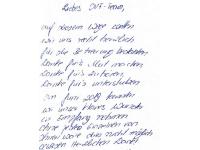 Liebes IVF-Team,
auf diesem Wege wollen
wir uns recht herzlich
für die Betreuung bedanken.
Danke für's Mut machen
Danke für's Zuhören,
Danke für's unterstützen
Im Juni 2019 konnten
wir unser kleines Wunder
in Empfang nehmen
Ohne
wäre dies nicht möglich
Herzlichen Dank!